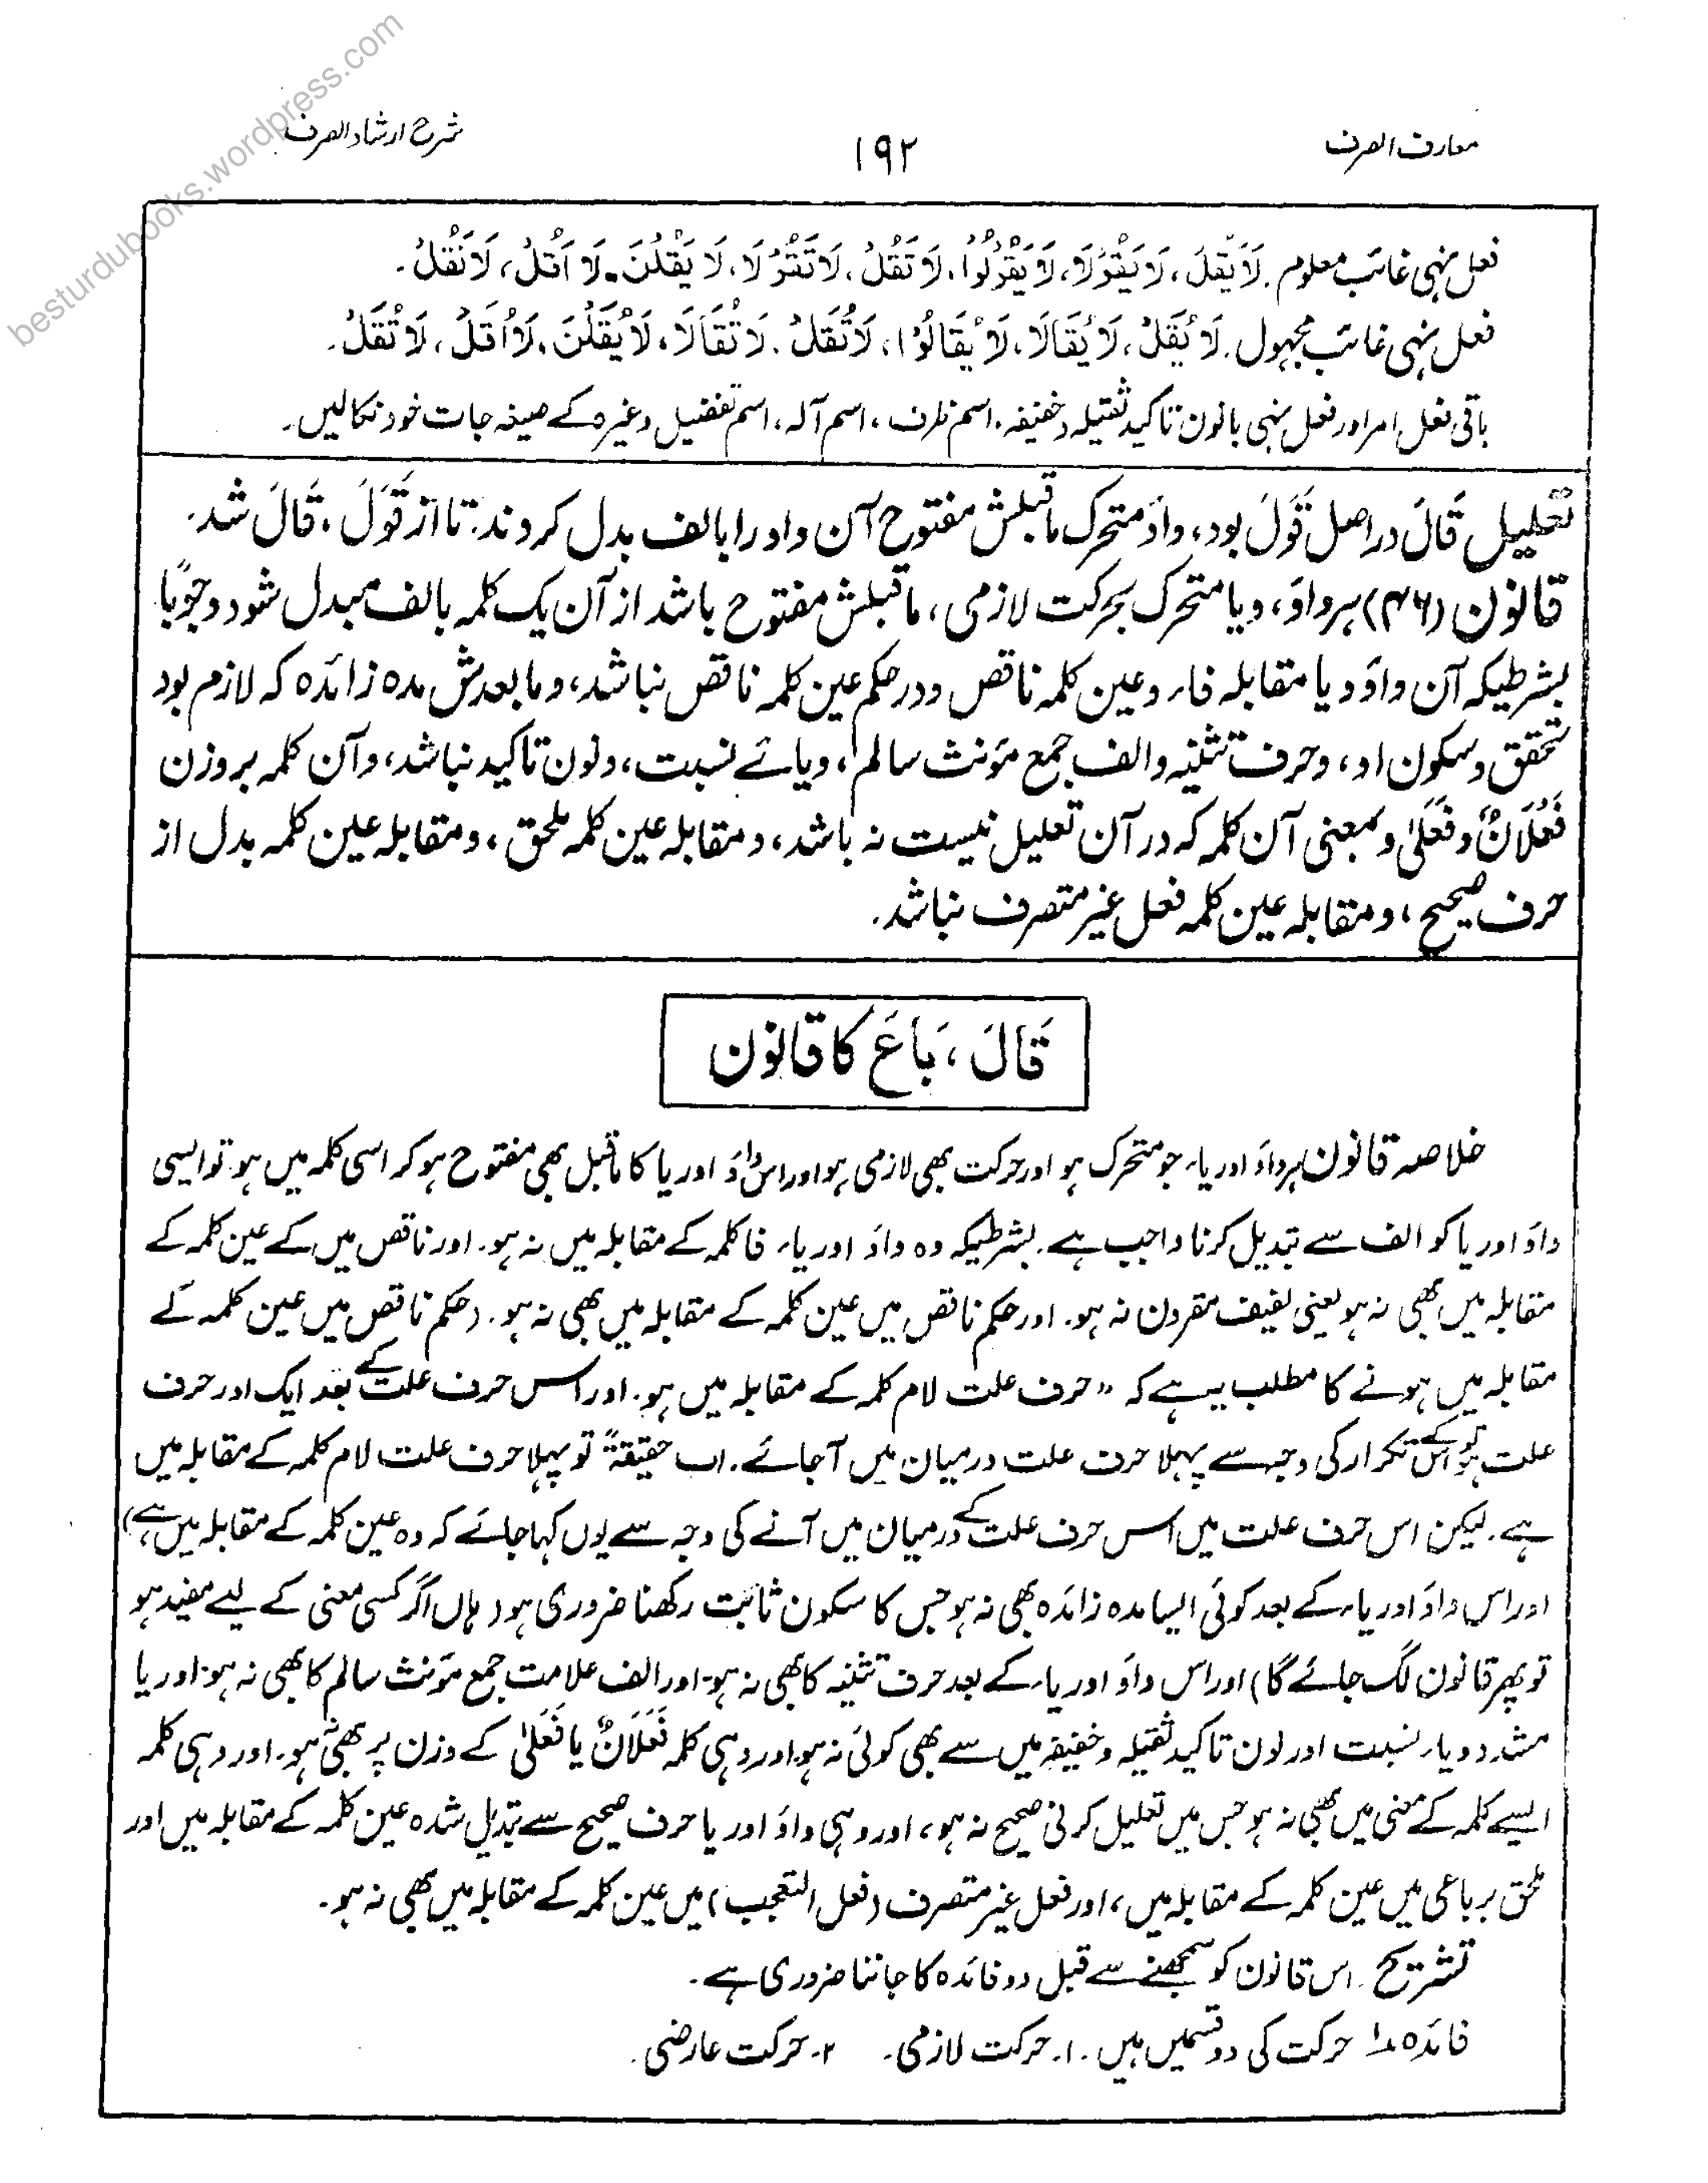 besturdubooks.wordpress.com
معارف الصرف
۱۹۲
شرح ارشاد الصرف
فعل نہی غائب معلوم. لَا يَقُلْ، لَا يَقُوْلَا، لَا يَقُوْلُوْا، لَا تَقُلْ، لَا تَقُوْلَا، لَا يَقُلْنَ، لَا اَقُلْ، لَا نَقُلْ.
فعل نہی غائب مجہول. لَا يُقَلْ، لَا يُقَالَا، لَا يُقَالُوْا، لَا تُقَلْ، لَا تُقَالَا، لَا يُقَلْنَ، لَا اُقَلْ، لَا نُقَلْ.
باقی فعل امر اور فعل نہی بانون تاکید ثقیلہ و خفیفہ، اسم ظرف، اسم آلہ، اسم تفضیل وغیرہ کے صیغہ جات خود نکالیں۔
تعلیل قَالَ در اصل قَوَلَ بود، واؤ متحرک ماقبلش مفتوح آن واو را بالف بدل کردند. تا از قَوَلَ، قَالَ شد.
قانون (۴۶) ہر واؤ، ویا متحرک بحرکت لازمی، ماقبلش مفتوح باشد از آن یک کلمہ بالف مبدل شود وجوبًا
بشرطیکہ آن واؤ ویا مقابلہ فاء وعین کلمہ ناقص ودر حکم عین کلمہ ناقص نباشد، وما بعدش مدہ زائدہ کہ لازم بود
تحقق وسکون او، وحرف تثنیہ والف جمع مؤنث سالم، ویائے نسبت، ونون تاکید نباشد، وآن کلمہ بر وزن
فَعَلَانٌ وفَعَلٰی وبمعنی آن کلمہ کہ در آن تعلیل نیست نہ باشد، ومقابلہ عین کلمہ ملحق، ومقابلہ عین کلمہ بدل از
حرف صحیح، ومقابلہ عین کلمہ فعل غیر متصرف نباشد.
قَالَ، بَاعَ کا قانون
خلاصہ قانون ہر واؤ اور یاء جو متحرک ہو اور حرکت بھی لازمی ہو اور اس واؤ اور یا کا ماقبل بھی مفتوح ہو کر اسی کلمہ میں ہو تو ایسی
واؤ اور یا کو الف سے تبدیل کرنا واجب ہے۔ بشرطیکہ وہ واؤ اور یاء فا کلمہ کے مقابلہ میں نہ ہو۔ اور ناقص میں کے عین کلمہ کے
مقابلہ میں بھی نہ ہو یعنی لفیف مقرون نہ ہو۔ اور حکم ناقص میں عین کلمہ کے مقابلہ میں بھی نہ ہو۔ (حکم ناقص میں عین کلمہ کے
مقابلہ میں ہونے کا مطلب یہ ہے کہ "حرف علت لام کلمہ کے مقابلہ میں ہو۔ اور اس حرف علت کے بعد ایک اور حرف
علت ہو اس کے تکرار کی وجہ سے پہلا حرف علت درمیان میں آجائے۔ اب حقیقۃً تو پہلا حرف علت لام کلمہ کے مقابلہ میں
ہے۔ لیکن اس حرف علت میں اس حرف علت کے درمیان میں آنے کی وجہ سے یوں کہا جائے کہ وہ عین کلمہ کے مقابلہ میں ہے)
اور اس واؤ اور یاء کے بعد کوئی ایسا مدہ زائدہ بھی نہ ہو جس کا سکون ثابت رکھنا ضروری ہو (ہاں اگر کسی معنی کے لیے مفید ہو
تو پھر قانون لگ جائے گا) اور اس واؤ اور یاء کے بعد حرف تثنیہ کا بھی نہ ہو۔ اور الف علامت جمع مؤنث سالم کا بھی نہ ہو۔ اور یا
مشدد ویاء نسبت اور نون تاکید ثقیلہ وخفیفہ میں سے بھی کوئی نہ ہو اور وہی کلمہ فَعَلَانٌ یا فَعَلٰی کے وزن پر بھی نہ ہو۔ اور وہی کلمہ
ایسے کلمہ کے معنی میں بھی نہ ہو جس میں تعلیل کرنی صحیح نہ ہو، اور وہی واؤ اور یا حرف صحیح سے تبدیل شدہ عین کلمہ کے مقابلہ میں اور
ملحق برباعی میں عین کلمہ کے مقابلہ میں، اور فعل غیر متصرف (فعل التعجب) میں عین کلمہ کے مقابلہ میں بھی نہ ہو۔
تشریح۔ اس قانون کو سمجھنے سے قبل دو فائدہ کا جاننا ضروری ہے۔
فائدہ ۱ حرکت کی دو قسمیں ہیں۔ ۱۔ حرکت لازمی۔ ۲۔ حرکت عارضی۔